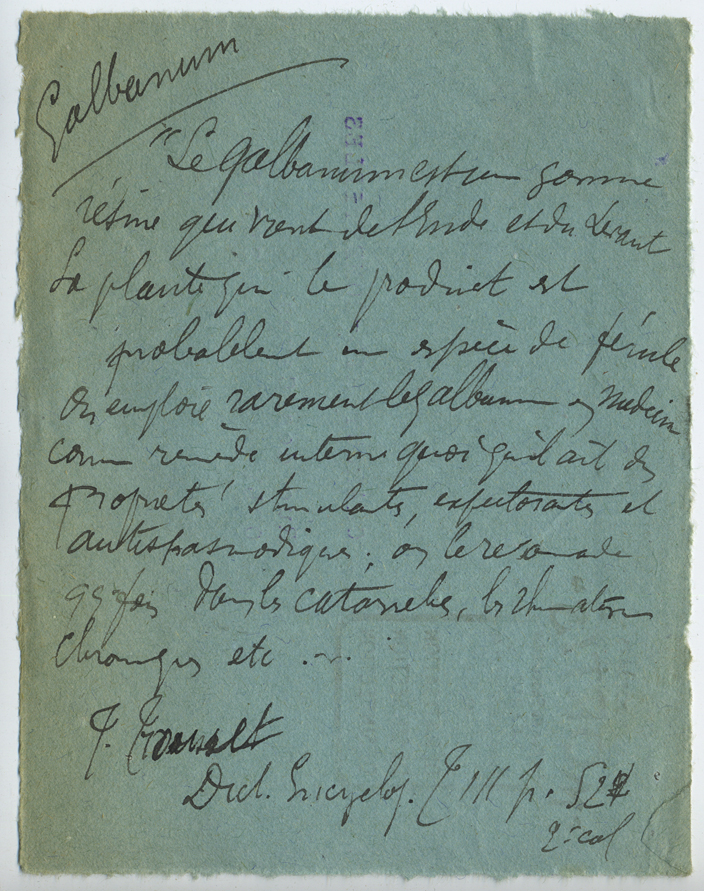 Galbanum
"Le galbanum est un gomme
résine qui vient de l'Inde et du Levant
La plante qui le produit est
probablent un espèce de férule
On emploie rarement le galbanum en médecin
comm remède interne quoi qu'il ait des
propriétés stimulants, expectorants et
antispasmodiques; on le recomande
qq fois dans les catarrhes, les rhumatism
chroniques etc ...
J. Trousset
Dict. Encyclop. T III p. 52
2e col